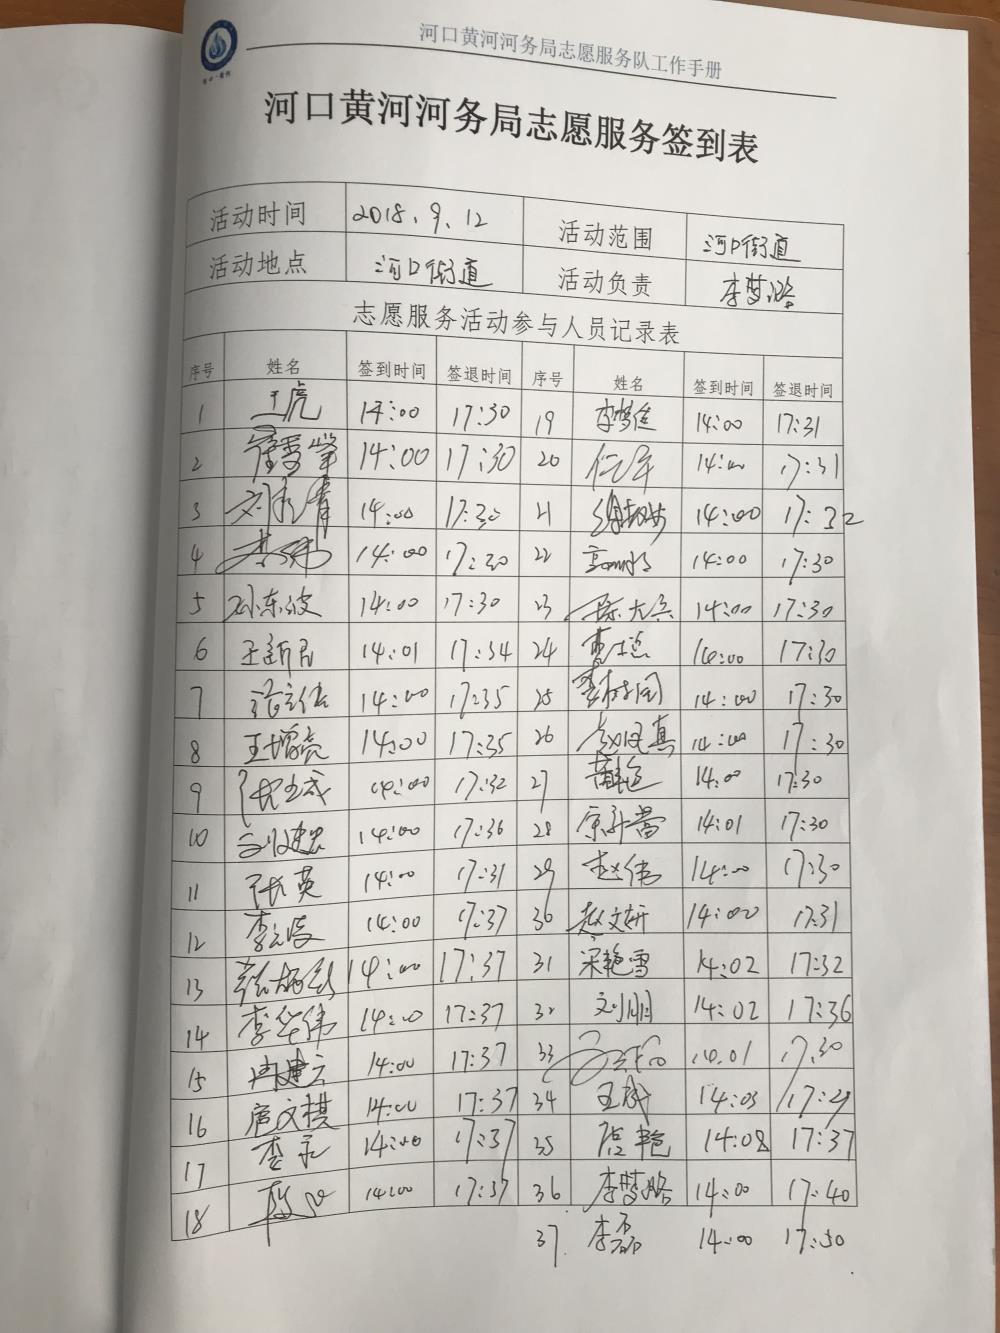 河口黄河河务局志愿服务队工作手册
河口黄河河务局志愿服务签到表
活动时间 2018.9.12 活动范围 河口街道
活动地点 河口街道 活动负责 李梦璐
志愿服务活动参与人员记录表
序号 姓名 签到时间 签退时间 序号 姓名 签到时间 签退时间
1 王虎 14:00 17:30 19 李梦佳 14:00 17:31
2 14:00 17:30 20 14:00 17:31
3 14:00 17:30 21 14:00 17:32
4 14:00 17:30 22 14:00 17:30
5 孙东波 14:00 17:30 23 陈大兵 14:00 17:30
6 王新民 14:01 17:34 24 14:00 17:30
7 14:00 17:35 25 14:00 17:30
8 王增亮 14:00 17:35 26 赵凤真 14:00 17:30
9 14:00 17:32 27 14:00 17:30
10 刘建忠 14:00 17:36 28 14:01 17:30
11 张英 14:00 17:31 29 赵伟 14:00 17:30
12 14:00 17:37 30 赵文妍 14:00 17:31
13 14:00 17:37 31 宋艳雪 14:02 17:32
14 李华伟 14:00 17:37 32 刘朋 14:02 17:36
15 冉建云 14:00 17:37 33 14.01 17.30
16 扈文棋 14:00 17:37 34 王斌 14:03 17:29
17 14:00 17:37 35 14:08 17:37
18 14:00 17:37 36 李梦璐 14:00 17:40
37. 李磊 14:00 17:50